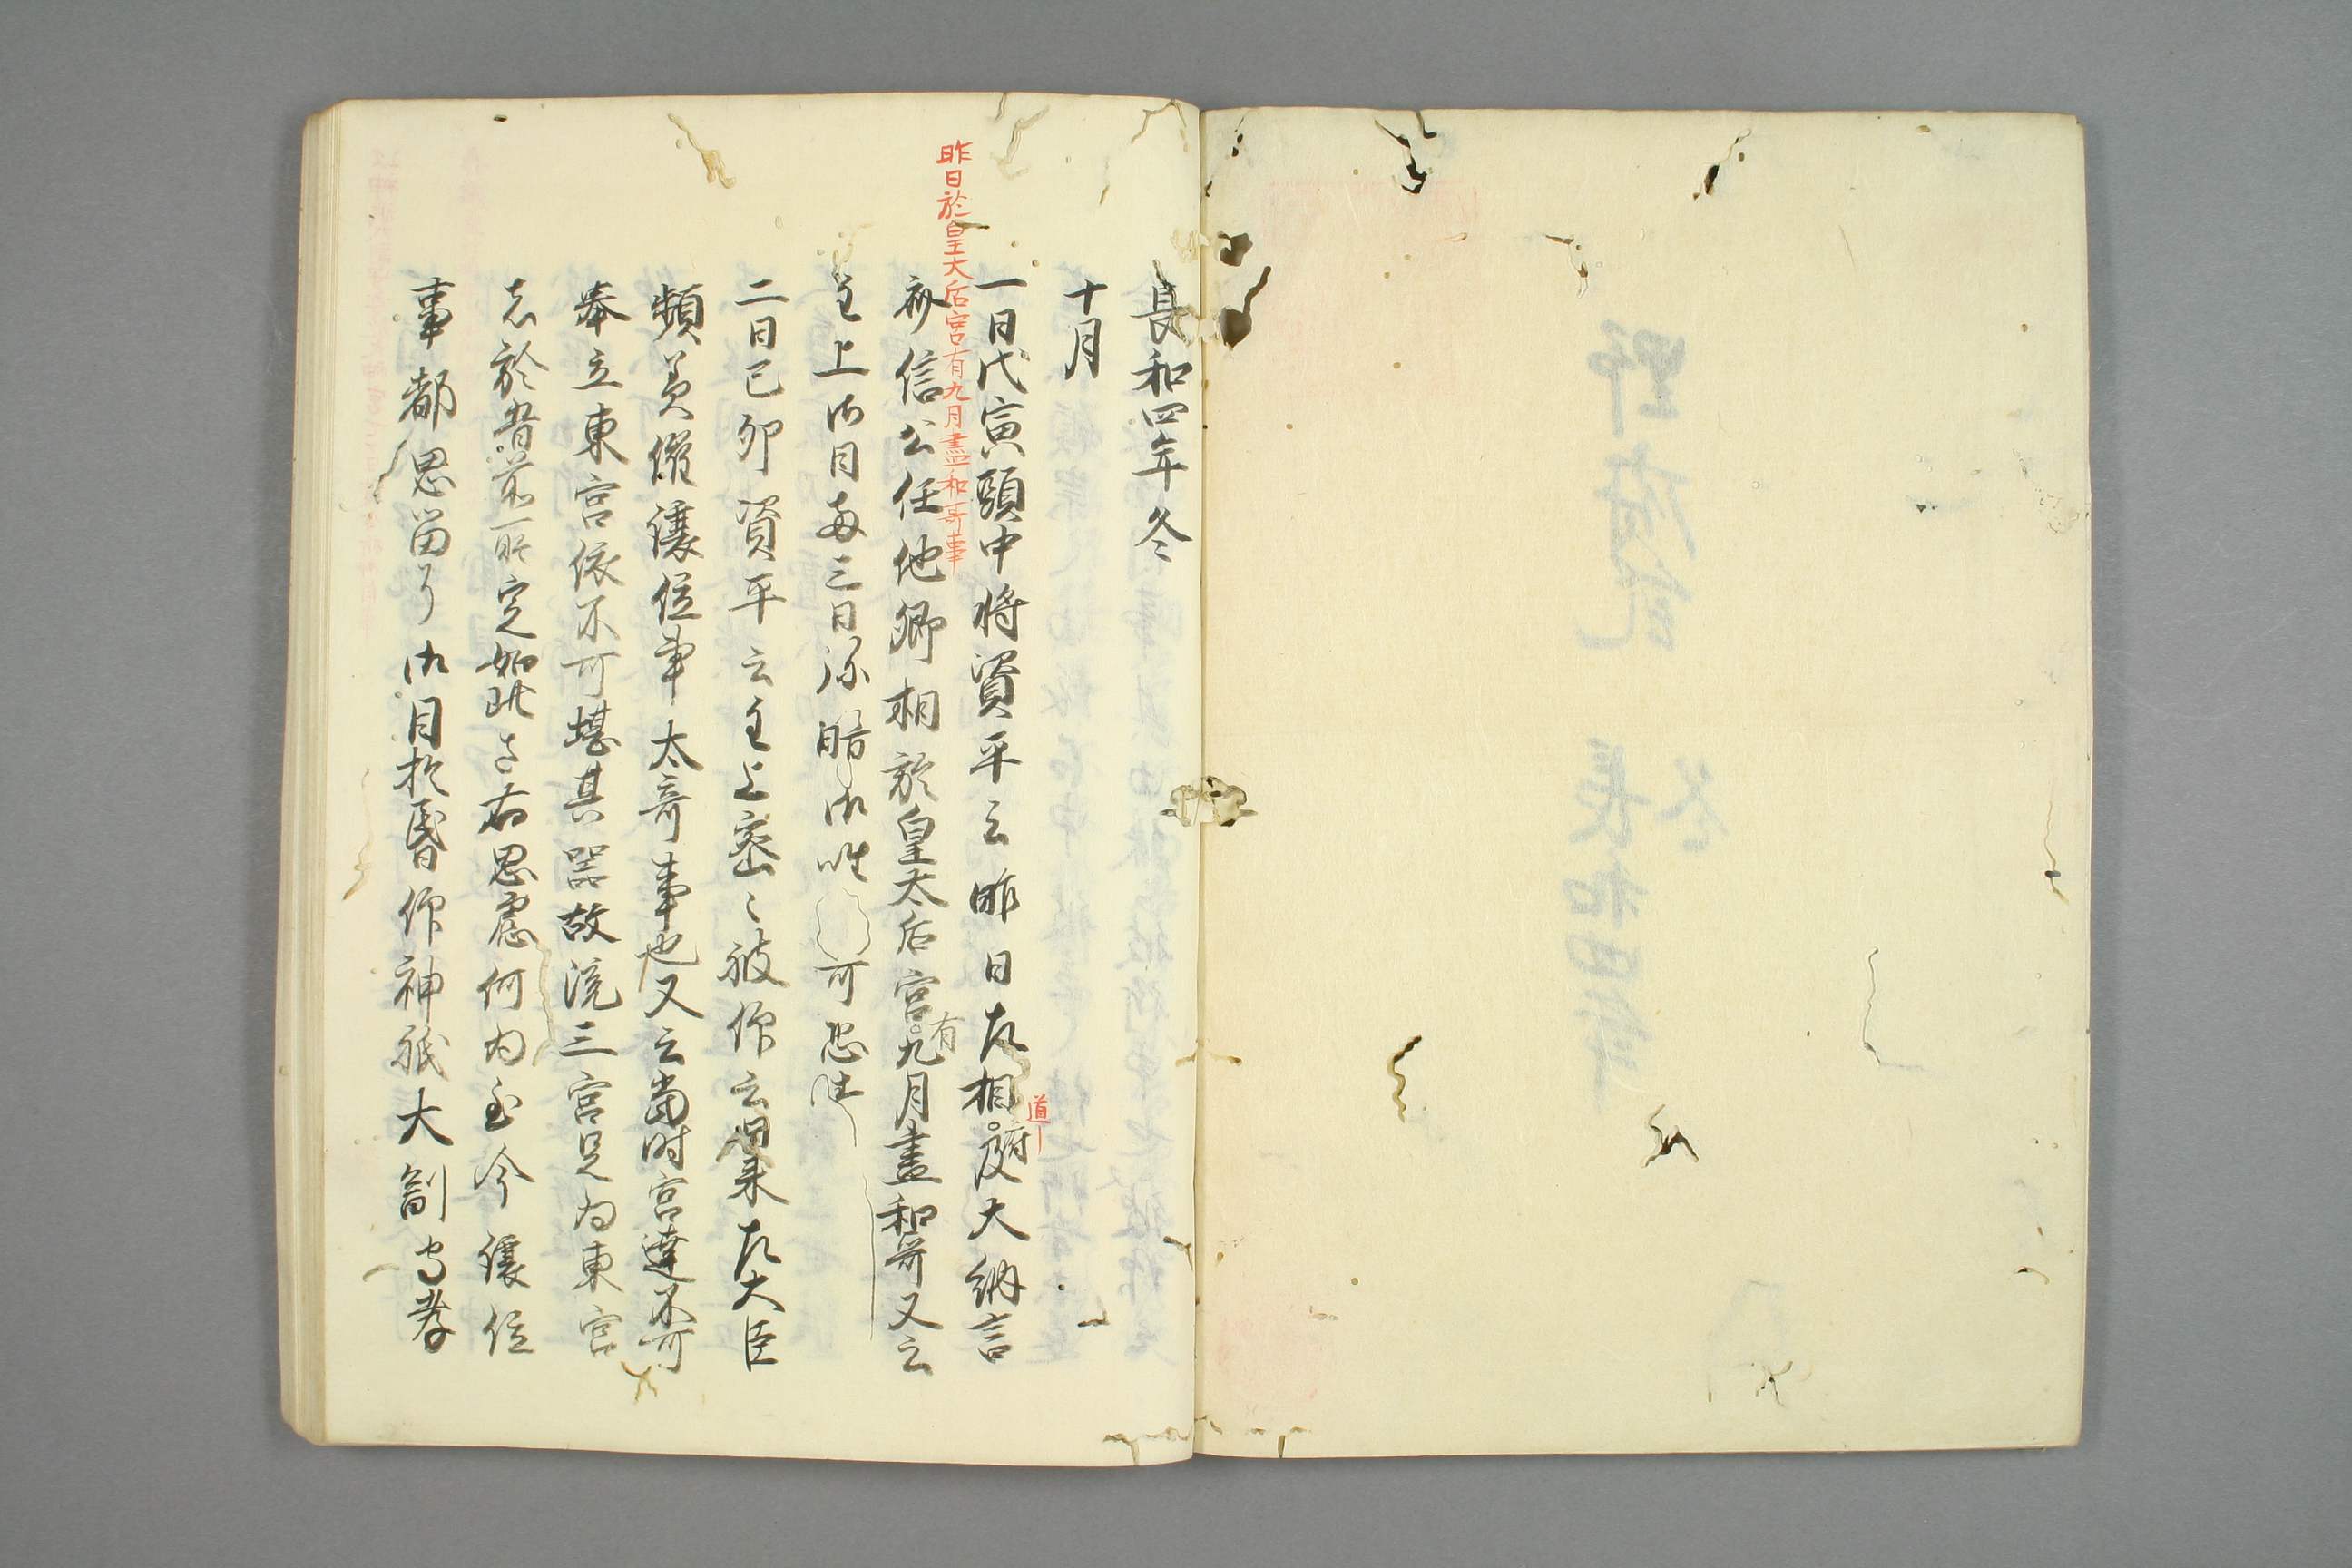 長和四年冬
十月
昨日於皇太后宮有九月盡和哥事
一日戊寅頭中将資平云昨日左相府大納言
道
齊信公任他卿相於皇太后宮有九月盡和哥又云
主上御目両三日弥暗御唯可恐々
二日己卯資平云主上密々被仰云日来左大臣
頻責催讓位事太奇事也又云當時宮達不可
奉立東宮依不可堪其器故院三宮足為東宮
志於昔前所定如此き右思慮何為至今讓位
事都思留了御目於昏仰神祇大副守孝